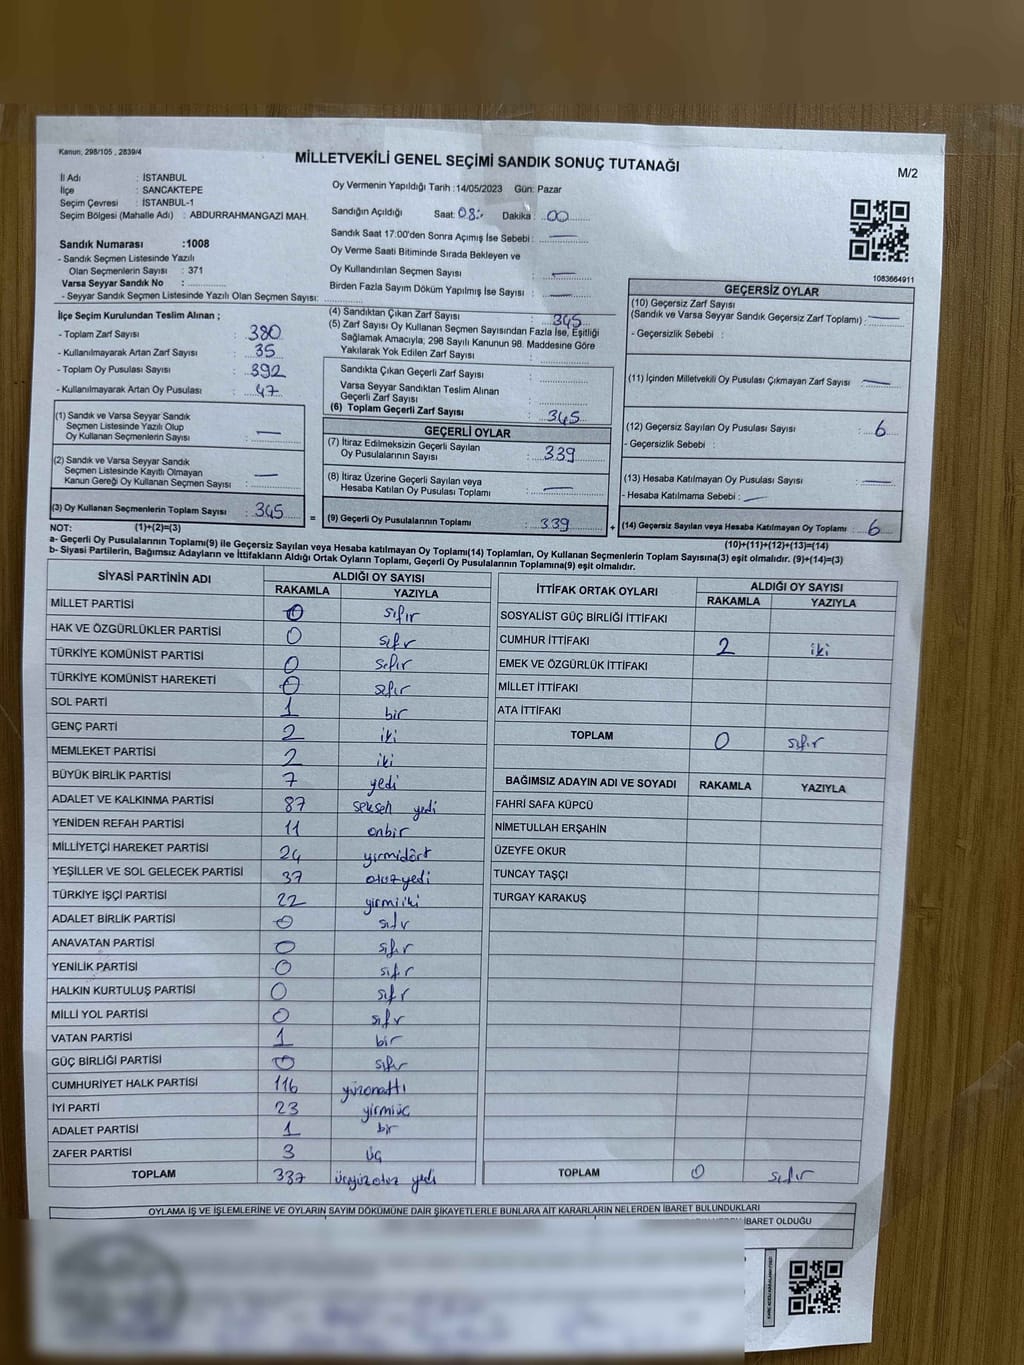 Kanun, 298/105 , 2839/4
MİLLETVEKİLİ GENEL SEÇİMİ SANDIK SONUÇ TUTANAĞI
M/2
İl Adı : İSTANBUL
İlçe : SANCAKTEPE
Seçim Çevresi : İSTANBUL-1
Seçim Bölgesi (Mahalle Adı) : ABDURRAHMANGAZİ MAH.
Sandık Numarası :1008
- Sandık Seçmen Listesinde Yazılı
Olan Seçmenlerin Sayısı : 371
Varsa Seyyar Sandık No :
- Seyyar Sandık Seçmen Listesinde Yazılı Olan Seçmen Sayısı:
Oy Vermenin Yapıldığı Tarih :14/05/2023 Gün: Pazar
Sandığın Açıldığı Saat: 08: Dakika : 00
Sandık Saat 17:00'den Sonra Açımış İse Sebebi : —
Oy Verme Saati Bitiminde Sırada Bekleyen ve
Oy Kullandırılan Seçmen Sayısı : —
Birden Fazla Sayım Döküm Yapılmış İse Sayısı : —
1083664911
İlçe Seçim Kurulundan Teslim Alınan ;
- Toplam Zarf Sayısı : 380
- Kullanılmayarak Artan Zarf Sayısı : 35
- Toplam Oy Pusulası Sayısı : 392
- Kullanılmayarak Artan Oy Pusulası : 47
(1) Sandık ve Varsa Seyyar Sandık
Seçmen Listesinde Yazılı Olup
Oy Kullanan Seçmenlerin Sayısı : —
(2) Sandık ve Varsa Seyyar Sandık
Seçmen Listesinde Kayıtlı Olmayan
Kanun Gereği Oy Kullanan Seçmen Sayısı : —
(3) Oy Kullanan Seçmenlerin Toplam Sayısı : 345
(4) Sandıktan Çıkan Zarf Sayısı : 345
(5) Zarf Sayısı Oy Kullanan Seçmen Sayısından Fazla İse, Eşitliği
Sağlamak Amacıyla, 298 Sayılı Kanunun 98. Maddesine Göre
Yakılarak Yok Edilen Zarf Sayısı :
Sandıkta Çıkan Geçerli Zarf Sayısı :
Varsa Seyyar Sandıktan Teslim Alınan
Geçerli Zarf Sayısı :
(6) Toplam Geçerli Zarf Sayısı : 345
GEÇERLİ OYLAR
(7) İtiraz Edilmeksizin Geçerli Sayılan
Oy Pusulalarının Sayısı : 339
(8) İtiraz Üzerine Geçerli Sayılan veya
Hesaba Katılan Oy Pusulası Toplamı : —
= (9) Geçerli Oy Pusulalarının Toplamı : 339
GEÇERSİZ OYLAR
(10) Geçersiz Zarf Sayısı
(Sandık ve Varsa Seyyar Sandık Geçersiz Zarf Toplamı) : —
- Geçersizlik Sebebi :
(11) İçinden Milletvekili Oy Pusulası Çıkmayan Zarf Sayısı : —
(12) Geçersiz Sayılan Oy Pusulası Sayısı : 6
- Geçersizlik Sebebi :
(13) Hesaba Katılmayan Oy Pusulası Sayısı : —
- Hesaba Katılmama Sebebi : —
+ (14) Geçersiz Sayılan veya Hesaba Katılmayan Oy Toplamı : 6
NOT: (1)+(2)=(3)
(10)+(11)+(12)+(13)=(14)
a- Geçerli Oy Pusulalarının Toplamı(9) ile Geçersiz Sayılan veya Hesaba katılmayan Oy Toplamı(14) Toplamları, Oy Kullanan Seçmenlerin Toplam Sayısına(3) eşit olmalıdır. (9)+(14)=(3)
b- Siyasi Partilerin, Bağımsız Adayların ve İttifakların Aldığı Ortak Oyların Toplamı, Geçerli Oy Pusulalarının Toplamına(9) eşit olmalıdır.
SİYASİ PARTİNİN ADI ALDIĞI OY SAYISI
RAKAMLA YAZIYLA
MİLLET PARTİSİ 0 sıfır
HAK VE ÖZGÜRLÜKLER PARTİSİ 0 sıfır
TÜRKİYE KOMÜNİST PARTİSİ 0 sıfır
TÜRKİYE KOMÜNİST HAREKETİ 0 sıfır
SOL PARTİ 1 bir
GENÇ PARTİ 2 iki
MEMLEKET PARTİSİ 2 iki
BÜYÜK BİRLİK PARTİSİ 7 yedi
ADALET VE KALKINMA PARTİSİ 87 seksen yedi
YENİDEN REFAH PARTİSİ 11 onbir
MİLLİYETÇİ HAREKET PARTİSİ 24 yirmidört
YEŞİLLER VE SOL GELECEK PARTİSİ 37 otuzyedi
TÜRKİYE İŞÇİ PARTİSİ 22 yirmiiki
ADALET BİRLİK PARTİSİ 0 sıfır
ANAVATAN PARTİSİ 0 sıfır
YENİLİK PARTİSİ 0 sıfır
HALKIN KURTULUŞ PARTİSİ 0 sıfır
MİLLİ YOL PARTİSİ 0 sıfır
VATAN PARTİSİ 1 bir
GÜÇ BİRLİĞİ PARTİSİ 0 sıfır
CUMHURİYET HALK PARTİSİ 116 yüzonaltı
İYİ PARTİ 23 yirmiüç
ADALET PARTİSİ 1 bir
ZAFER PARTİSİ 3 üç
TOPLAM 337 üçyüzotuz yedi
İTTİFAK ORTAK OYLARI ALDIĞI OY SAYISI
RAKAMLA YAZIYLA
SOSYALİST GÜÇ BİRLİĞİ İTTİFAKI
CUMHUR İTTİFAKI 2 iki
EMEK VE ÖZGÜRLÜK İTTİFAKI
MİLLET İTTİFAKI
ATA İTTİFAKI
TOPLAM 0 sıfır
BAĞIMSIZ ADAYIN ADI VE SOYADI RAKAMLA YAZIYLA
FAHRİ SAFA KÜPCÜ
NİMETULLAH ERŞAHİN
ÜZEYFE OKUR
TUNCAY TAŞÇI
TURGAY KARAKUŞ
TOPLAM 0 sıfır
OYLAMA İŞ VE İŞLEMLERİNE VE OYLARIN SAYIM DÖKÜMÜNE DAİR ŞİKAYETLERLE BUNLARA AİT KARARLARIN NELERDEN İBARET BULUNDUKLARI
İBARET OLDUĞU